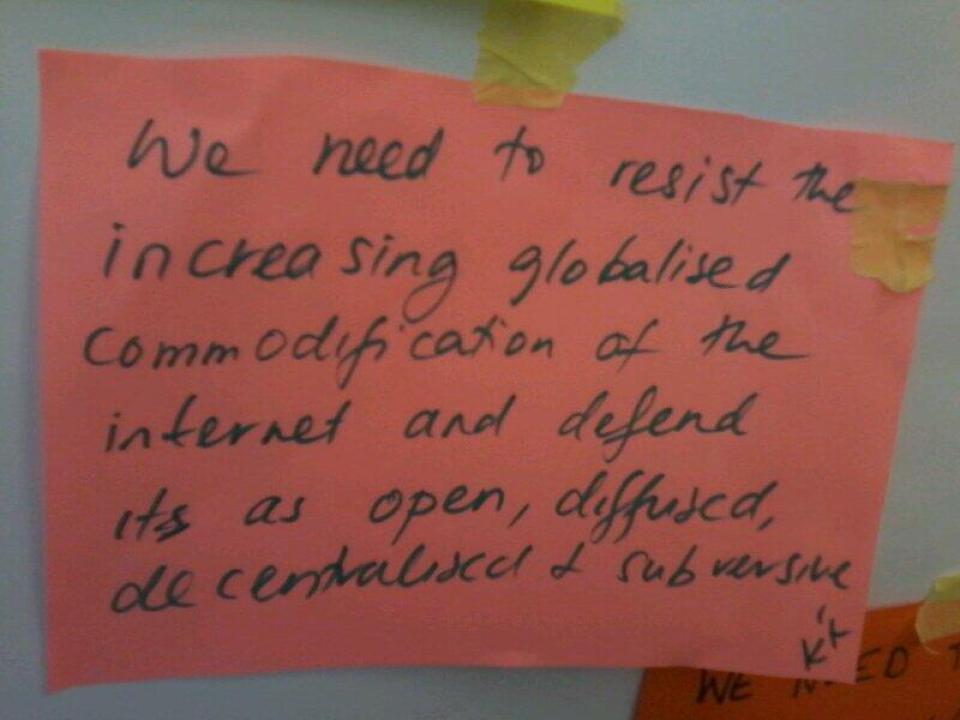 We need to resist the
increasing globalised
commodification of the
internet and defend
its as open, diffused,
decentralised & subversive
Kit
WE NEED T